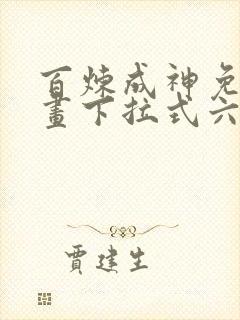 百炼成神免
畫下拉式六
賈建生